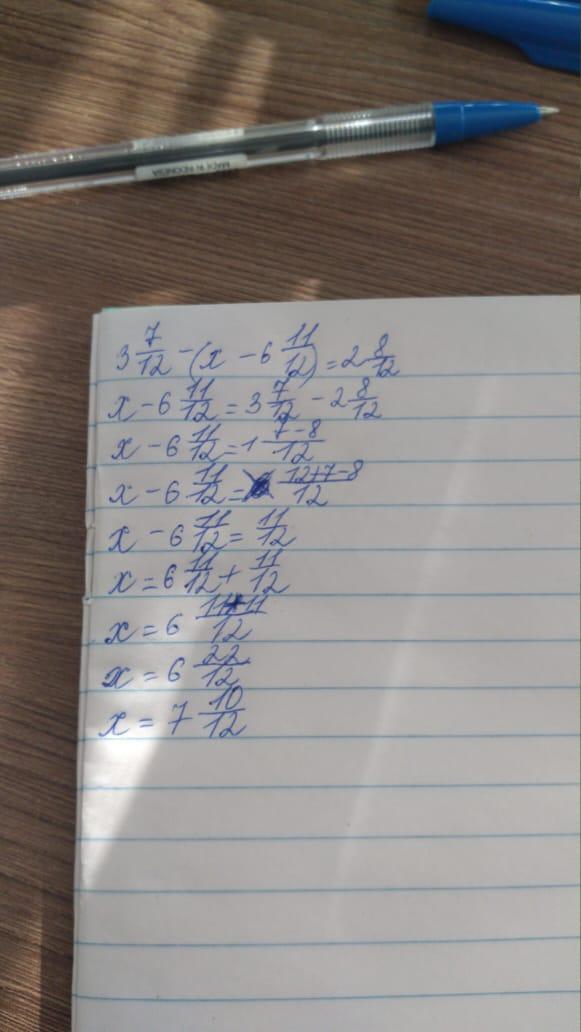 MADE IN INDONESIA
3 7/12 - (x - 6 11/12) = 2 8/12
x - 6 11/12 = 3 7/12 - 2 8/12
x - 6 11/12 = 1 7-8/12
x - 6 11/12 = 12+7-8/12
x - 6 11/12 = 11/12
x = 6 11/12 + 11/12
x = 6 11+11/12
x = 6 22/12
x = 7 10/12